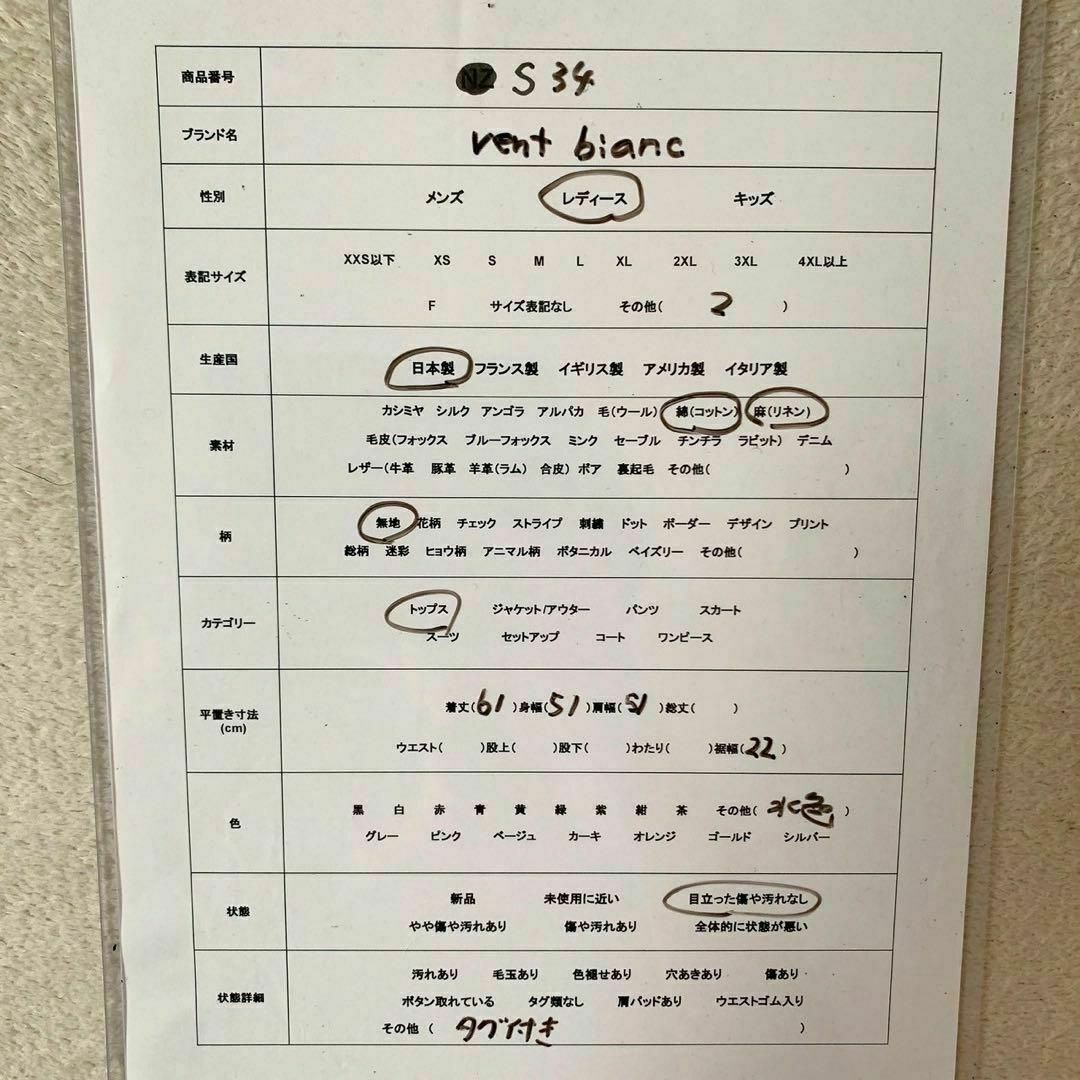 商品番号 NZ S 34
ブランド名 vent bianc
性別 メンズ レディース キッズ
XXS以下 XS S M L XL 2XL 3XL 4XL以上
表記サイズ
F サイズ表記なし その他( 2 )
生産国 日本製 フランス製 イギリス製 アメリカ製 イタリア製
カシミヤ シルク アンゴラ アルパカ 毛(ウール) 綿(コットン) 麻(リネン)
素材 毛皮(フォックス ブルーフォックス ミンク セーブル チンチラ ラビット) デニム
レザー(牛革 豚革 羊革(ラム) 合皮) ボア 裏起毛 その他( )
無地 花柄 チェック ストライプ 刺繍 ドット ボーダー デザイン プリント
柄
総柄 迷彩 ヒョウ柄 アニマル柄 ボタニカル ペイズリー その他( )
トップス ジャケット/アウター パンツ スカート
カテゴリー
スーツ セットアップ コート ワンピース
着丈(61)身幅(51)肩幅(51)総丈( )
平置き寸法
(cm)
ウエスト( )股上( )股下( )わたり( )裾幅(22)
黒 白 赤 青 黄 緑 紫 紺 茶 その他( 水色 )
色
グレー ピンク ベージュ カーキ オレンジ ゴールド シルバー
新品 未使用に近い 目立った傷や汚れなし
状態
やや傷や汚れあり 傷や汚れあり 全体的に状態が悪い
汚れあり 毛玉あり 色褪せあり 穴あきあり 傷あり
状態詳細 ボタン取れている タグ類なし 肩パッドあり ウエストゴム入り
その他 ( タグ付き )